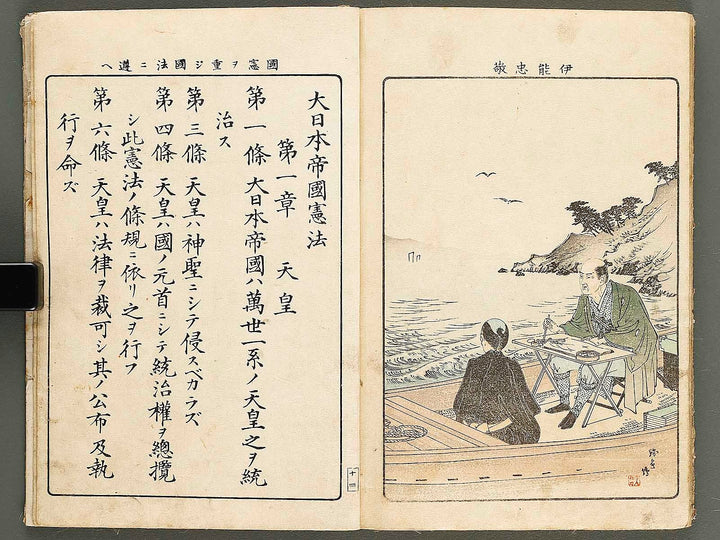 伊能忠敬
國憲ヲ重ジ國法ニ遵ヘ
大日本帝國憲法
第一章　天皇
第一條　大日本帝國ハ萬世一系ノ天皇之ヲ統
治ス
第三條　天皇ハ神聖ニシテ侵スベカラズ
第四條　天皇ハ國ノ元首ニシテ統治權ヲ總攬
シ此憲法ノ條規ニ依リ之ヲ行フ
第六條　天皇ハ法律ヲ裁可シ其ノ公布及執
行ヲ命ズ